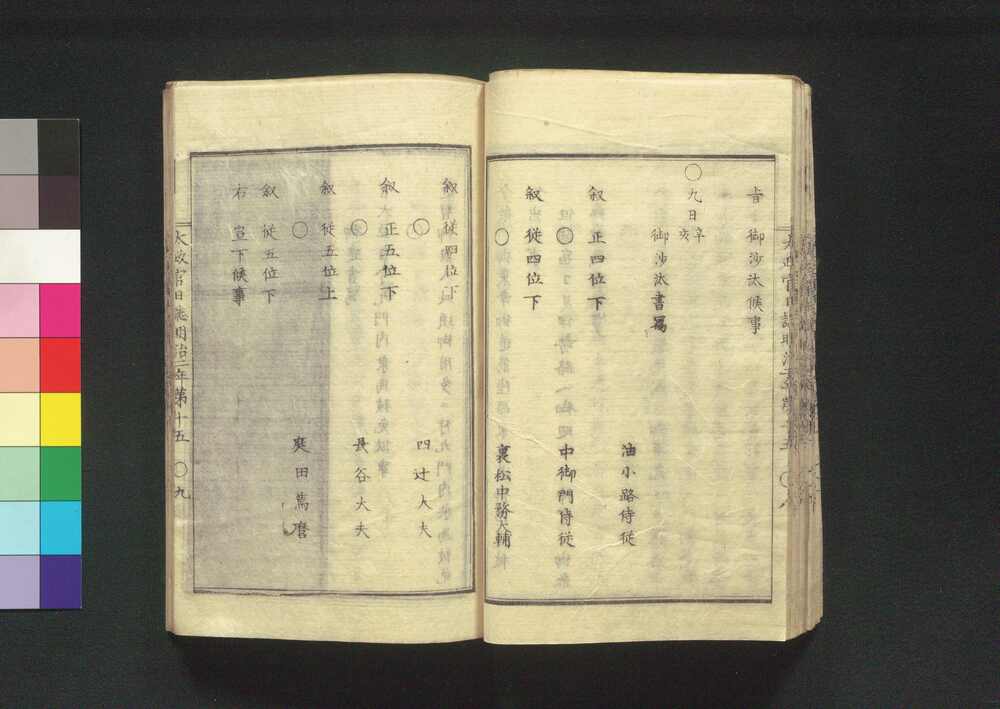 旨 御沙汰候事
〇九日辛亥 御沙汰書写
油小路侍従
叙 正四位下
〇 中御門侍従
叙 従四位下
〇 裏松中務大輔
叙 従四位下
〇 四辻大夫
叙 正五位下
〇 長谷大夫
叙 従五位上
〇 田為麿
叙 従五位下
右 宣下候事
太政官日誌明治二年第十五 〇九